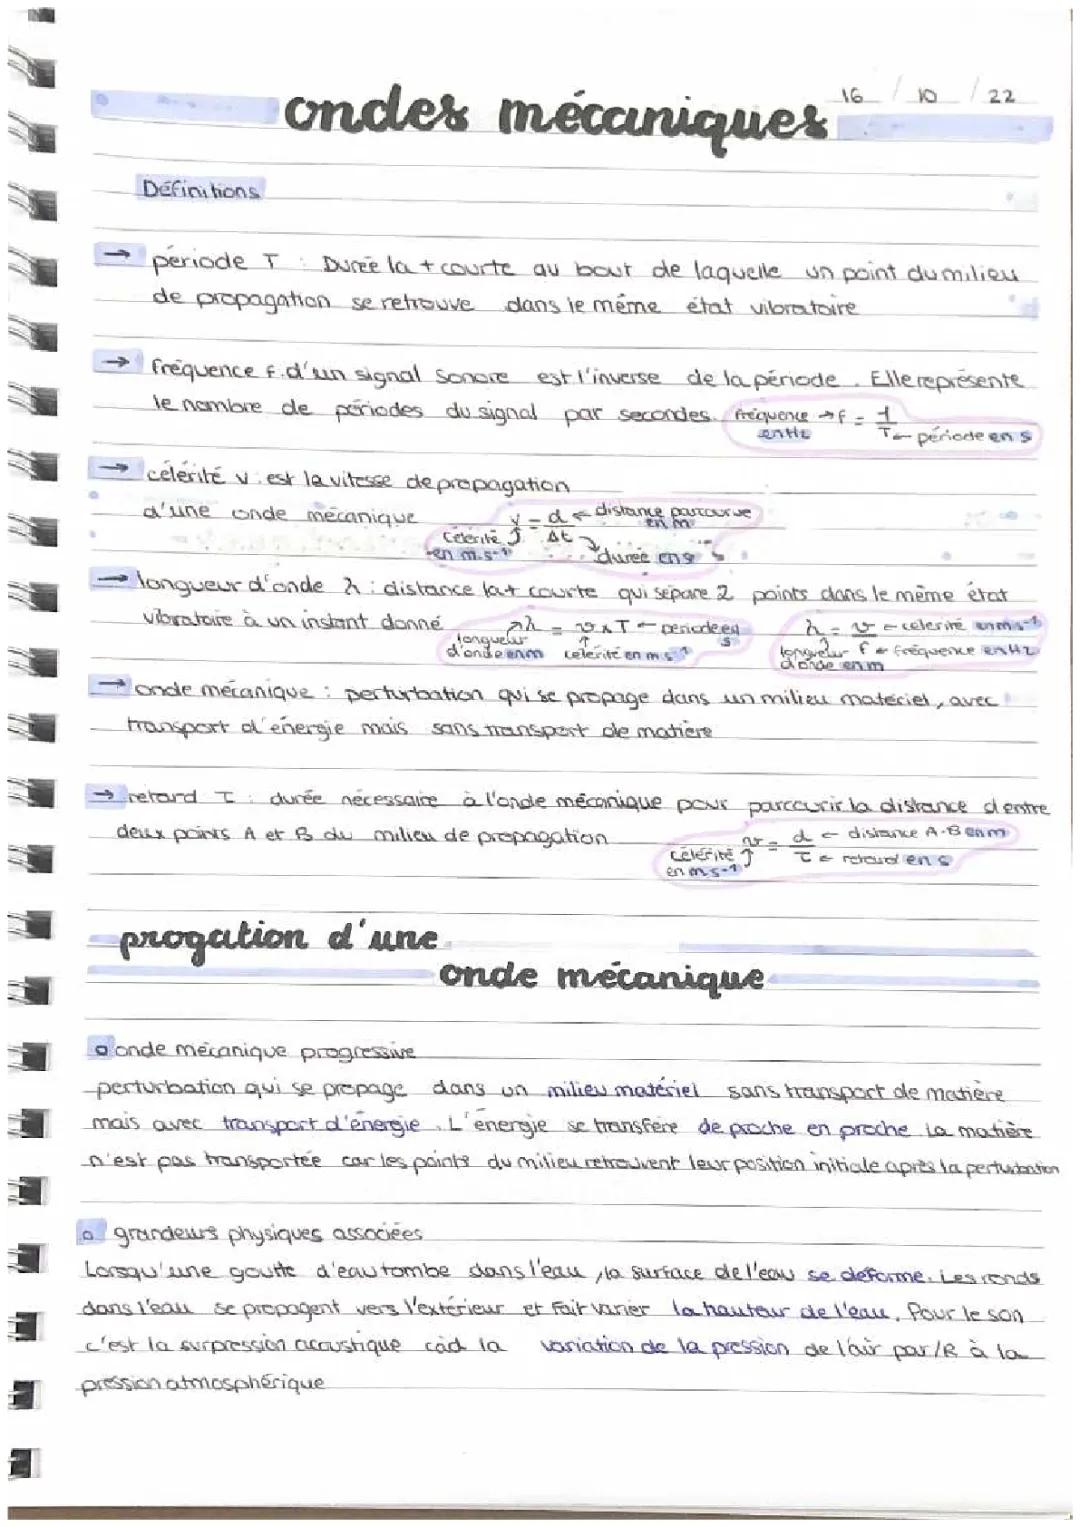 16 / 10 / 22
ondes mécaniques
Définitions
→ période T : Durée la + courte au bout de laquelle un point du milieu
de propagation se retrouve dans le même état vibratoire
→ fréquence f. d'un signal sonore est l'inverse de la période. Elle représente
le nombre de périodes du signal par secondes. fréquence → f = 1/T ← période en s
en Hz
→ célérité v : est la vitesse de propagation
d'une onde mécanique
v = d/Δt ← distance parcourue en m
célérité en m.s-1
durée en s
→ longueur d'onde λ : distance la + courte qui sépare 2 points dans le même état
vibratoire à un instant donné
λ = v x T ← période en s
longueur d'onde en m célérité en m.s-1
λ = v/f ← célérité en m.s-1
longueur d'onde en m ← fréquence en Hz
→ onde mécanique : perturbation qui se propage dans un milieu matériel, avec
transport d'énergie mais sans transport de matière
→ retard τ : durée nécessaire à l'onde mécanique pour parcourir la distance d entre
deux points A et B du milieu de propagation
v = d/τ ← distance A-B en m
célérité en m.s-1 ← retard en s
progation d'une
onde mécanique
o onde mécanique progressive
perturbation qui se propage dans un milieu matériel sans transport de matière
mais avec transport d'énergie. L'énergie se transfère de proche en proche. La matière
n'est pas transportée car les points du milieu retrouvent leur position initiale après la perturbation
o grandeurs physiques associées
Lorsqu'une goutte d'eau tombe dans l'eau, la surface de l'eau se déforme. Les ronds
dans l'eau se propagent vers l'extérieur et fait varier la hauteur de l'eau. Pour le son
c'est la surpression acoustique càd la variation de la pression de l'air par/R à la
pression atmosphérique